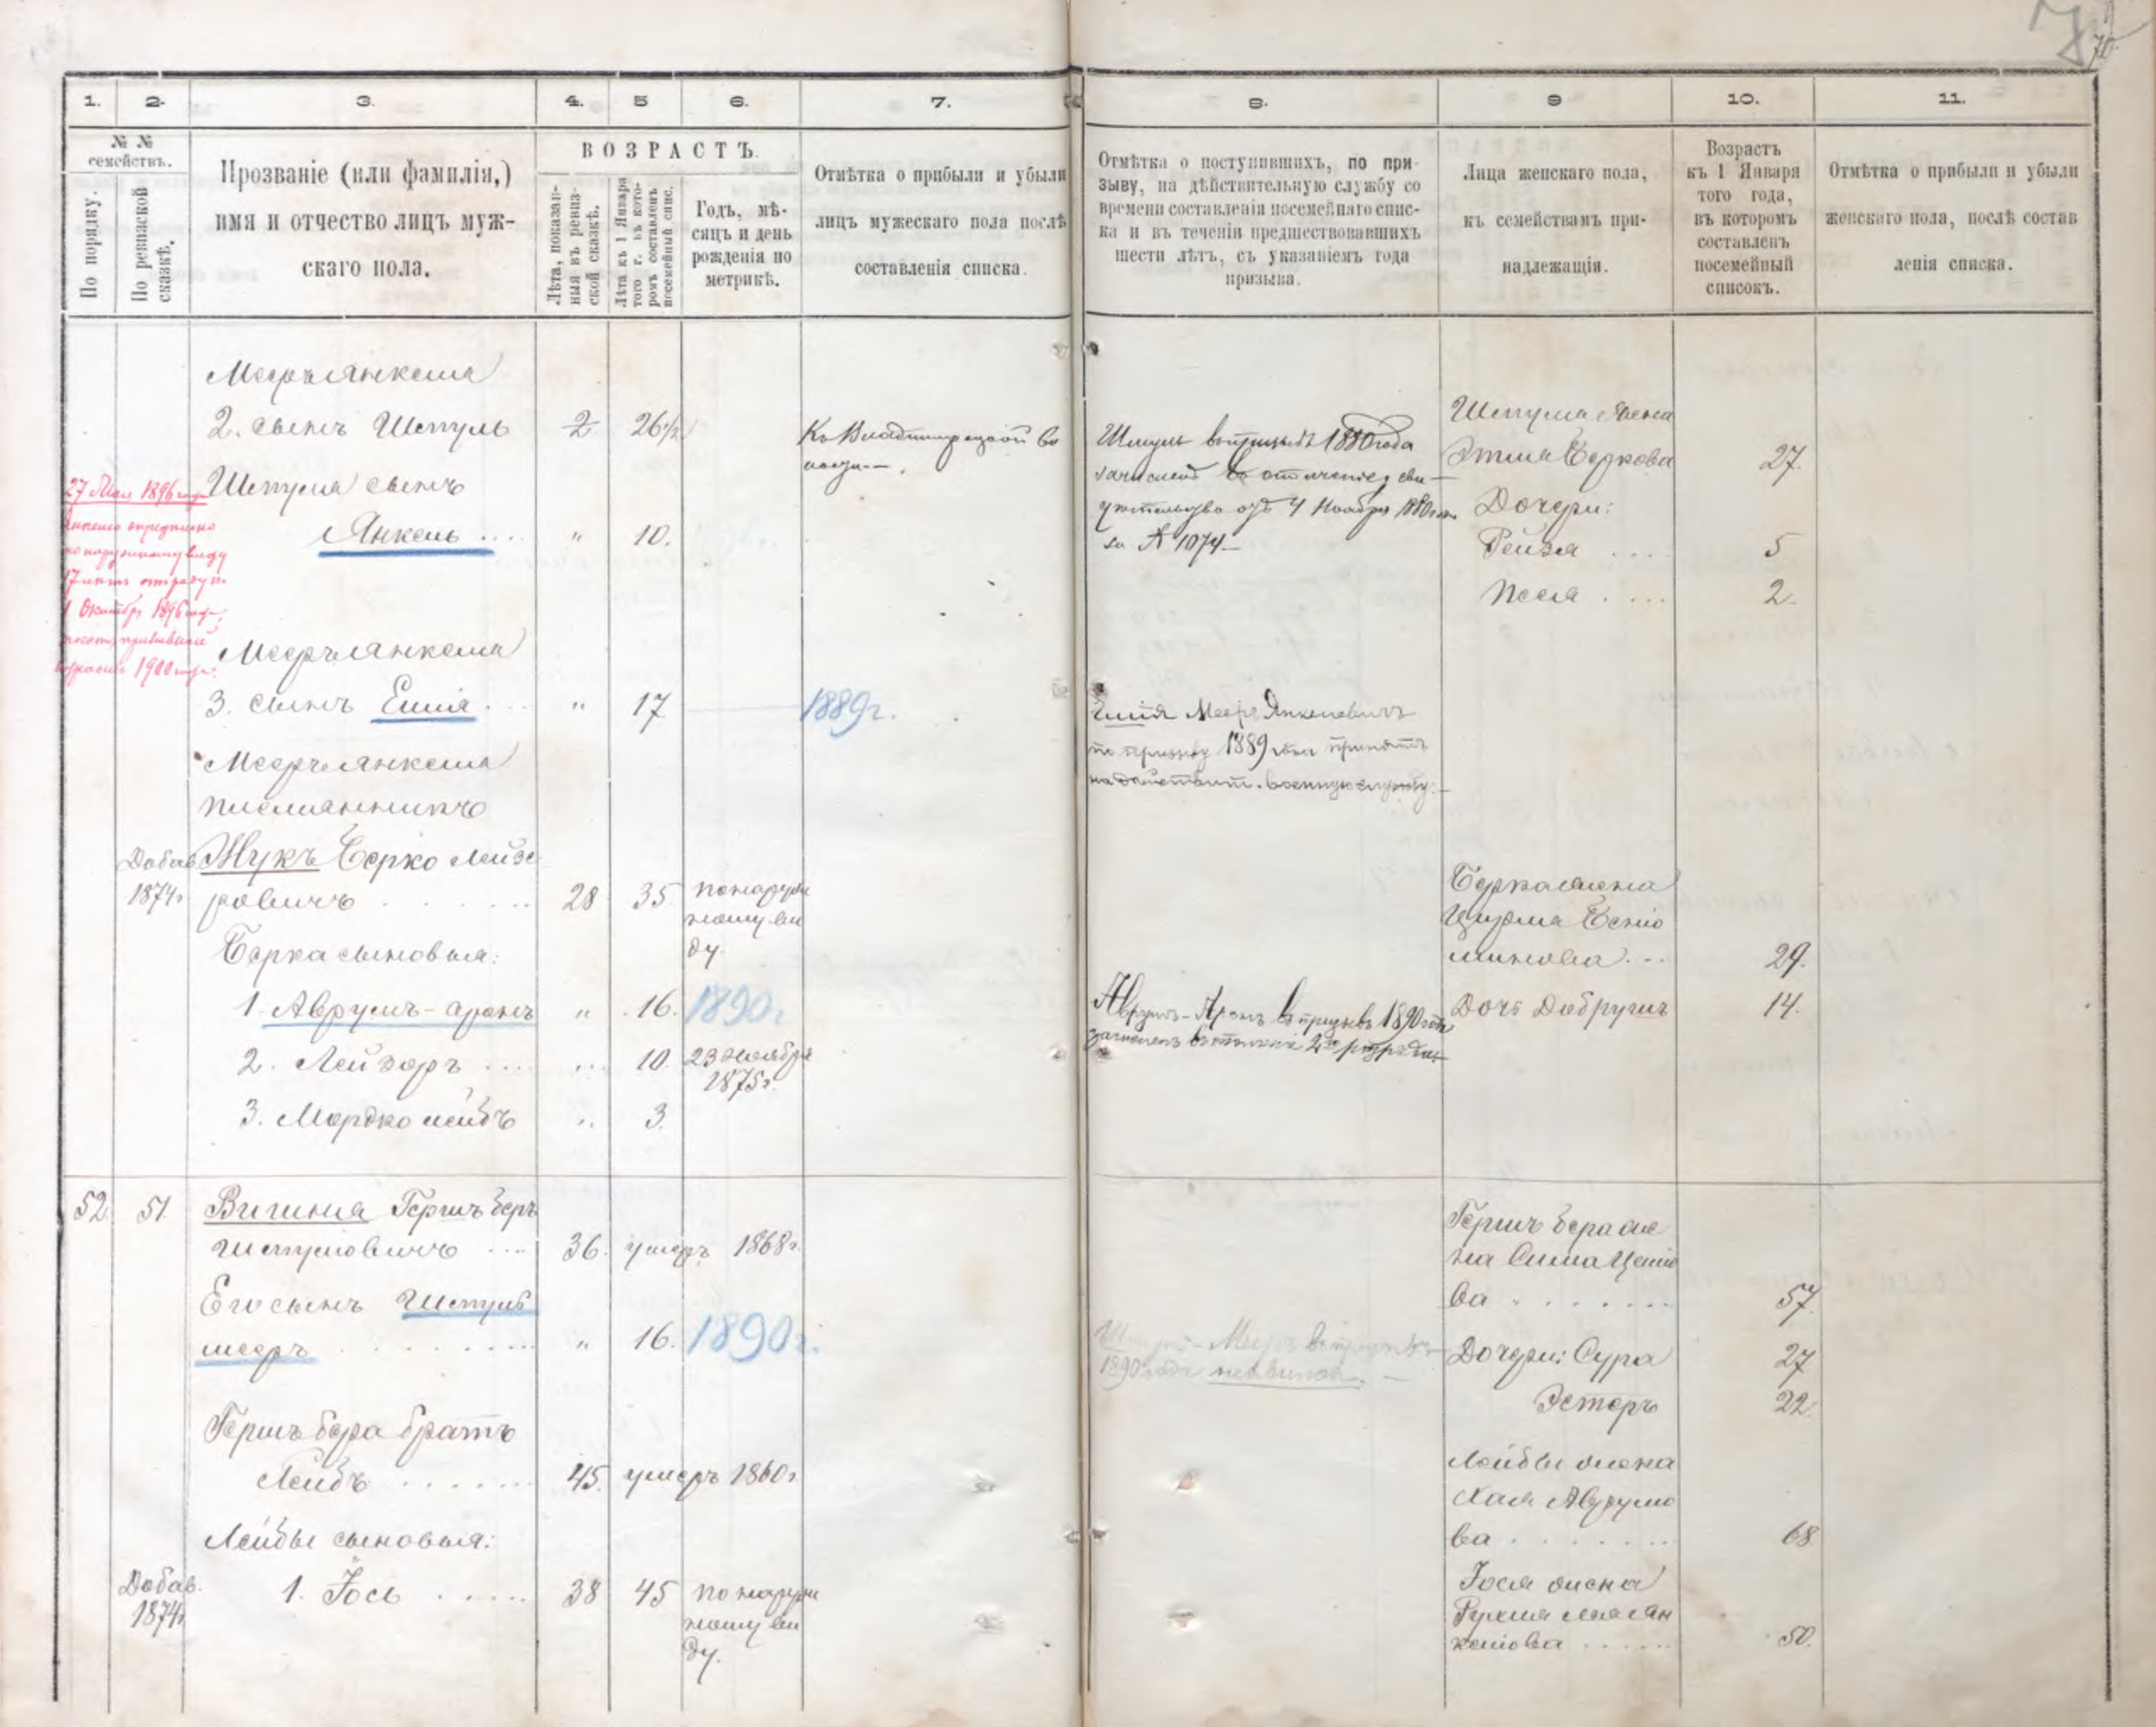 70.
1.
2.
3.
4.
5
6.
7.
8.
9
10.
11.
№ №
семействъ.
По порядку.
По ревизской
сказкѣ.
Прозваніе (или фамилія,)
имя и отчество лицъ муж-
скаго пола.
ВОЗРАСТЪ.
Лѣта, показан-
ныя въ ревиз-
ской сказкѣ.
Лѣта къ 1 Января
того г. въ кото-
ромъ составленъ
посемейный спис.
Годъ, мѣ-
сяцъ и день
рожденія по
метрикѣ.
Отмѣтка о прибыли и убыли
лицъ мужескаго пола послѣ
составленія списка.
Отмѣтка о поступившихъ, по при-
зыву, на дѣйствительную службу со
времени составленія посемейнаго спис-
ка и въ теченіи предшествовавшихъ
шести лѣтъ, съ указаніемъ года
призыва.
Лица женскаго пола,
къ семействамъ при-
надлежащія.
Возрастъ
къ 1 Января
того года,
въ которомъ
составленъ
посемейный
списокъ.
Отмѣтка о прибыли и убыли
женскаго пола, послѣ состав
ленія списка.
Мееръ Янкеля
2. сынъ Шмуль
2
26½
Шмуля сынъ
Янкель
"
10.
27 Мая 1896 года
по наружному виду
17 лѣтъ
1 Октября 1896
1900
Шмуль въ призывъ 1880 года
зачисленъ въ ополченіе, сви-
дѣтельство отъ 4 Ноября 1880 года
за № 1074
Шмуля жена
Этля Беркова
27.
Дочери:
Рейзя
5
Песя
2.
Мееръ Янкеля
3. сынъ Ешія
"
17
1889г.
Ешія Мееръ Янкелевичъ
по призыву 1889 года принятъ
на дѣйствит. военную службу.
Мееръ Янкеля
племянникъ
Добав.
1874г
Жукъ Берко Лейзе
ровичъ
28
35
по наруж
ному ви
ду.
Берка жена
Цирля Бенiо
минова
29.
Берка сыновья:
1. Аврумъ-Аронъ
"
16.
1890г
Аврумъ-Аронъ въ призывъ 1890 года
зачисленъ въ ополченіе 2го разряда
Дочь Добрушъ
14.
2. Лейзоръ
10.
23 Ноября
1875г.
3. Мордко Лейбъ
"
3.
52.
51.
Вигиня Гершъ Беръ
Шмуловичъ
36.
умеръ 1868г.
Гершъ Бера же
на Сима
ва
57.
Его сынъ Шмуль
Мееръ
"
16.
1890г.
1890 года не явился.
Дочери: Сура
27
Эстеръ
22
Гершъ Бера братъ
Лейбъ
45.
умеръ 1860г
Лейбы жена
Хая Аврумо
ва
68
Лейбы сыновья:
Добав.
1874г
1. Іось
38
45
по наруж
ному ви
ду.
Іося жена
Рухля Лея Ян
келова
50.